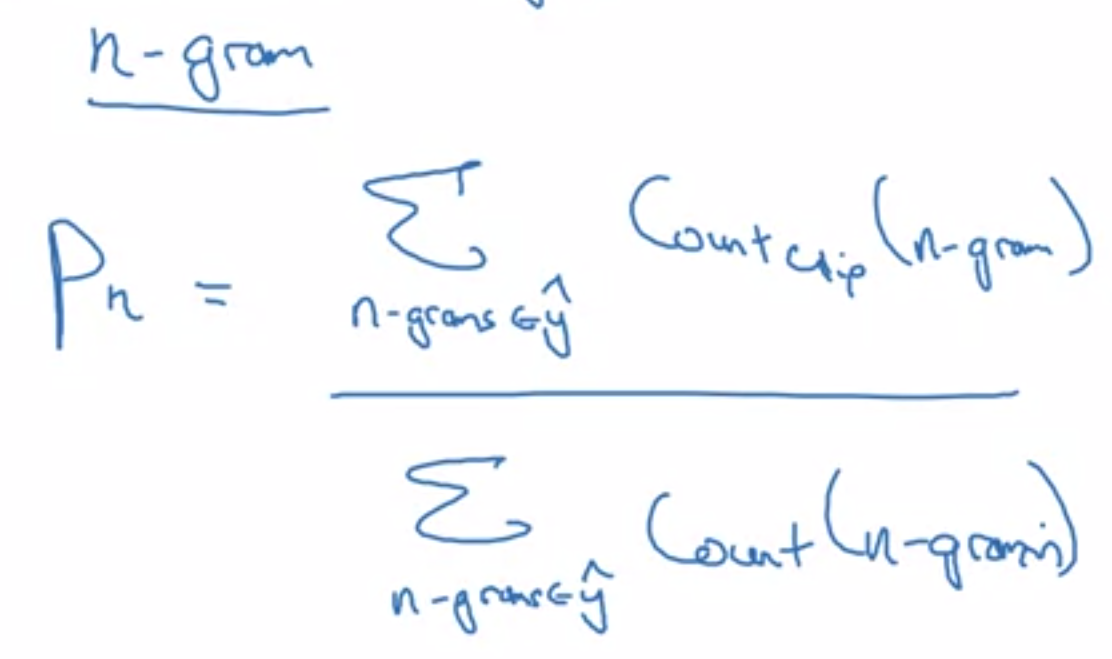 n-gram
Pn = Σ n-grams∈ŷ Countclip (n-gram)
Σ n-grams∈ŷ Count (n-gram)